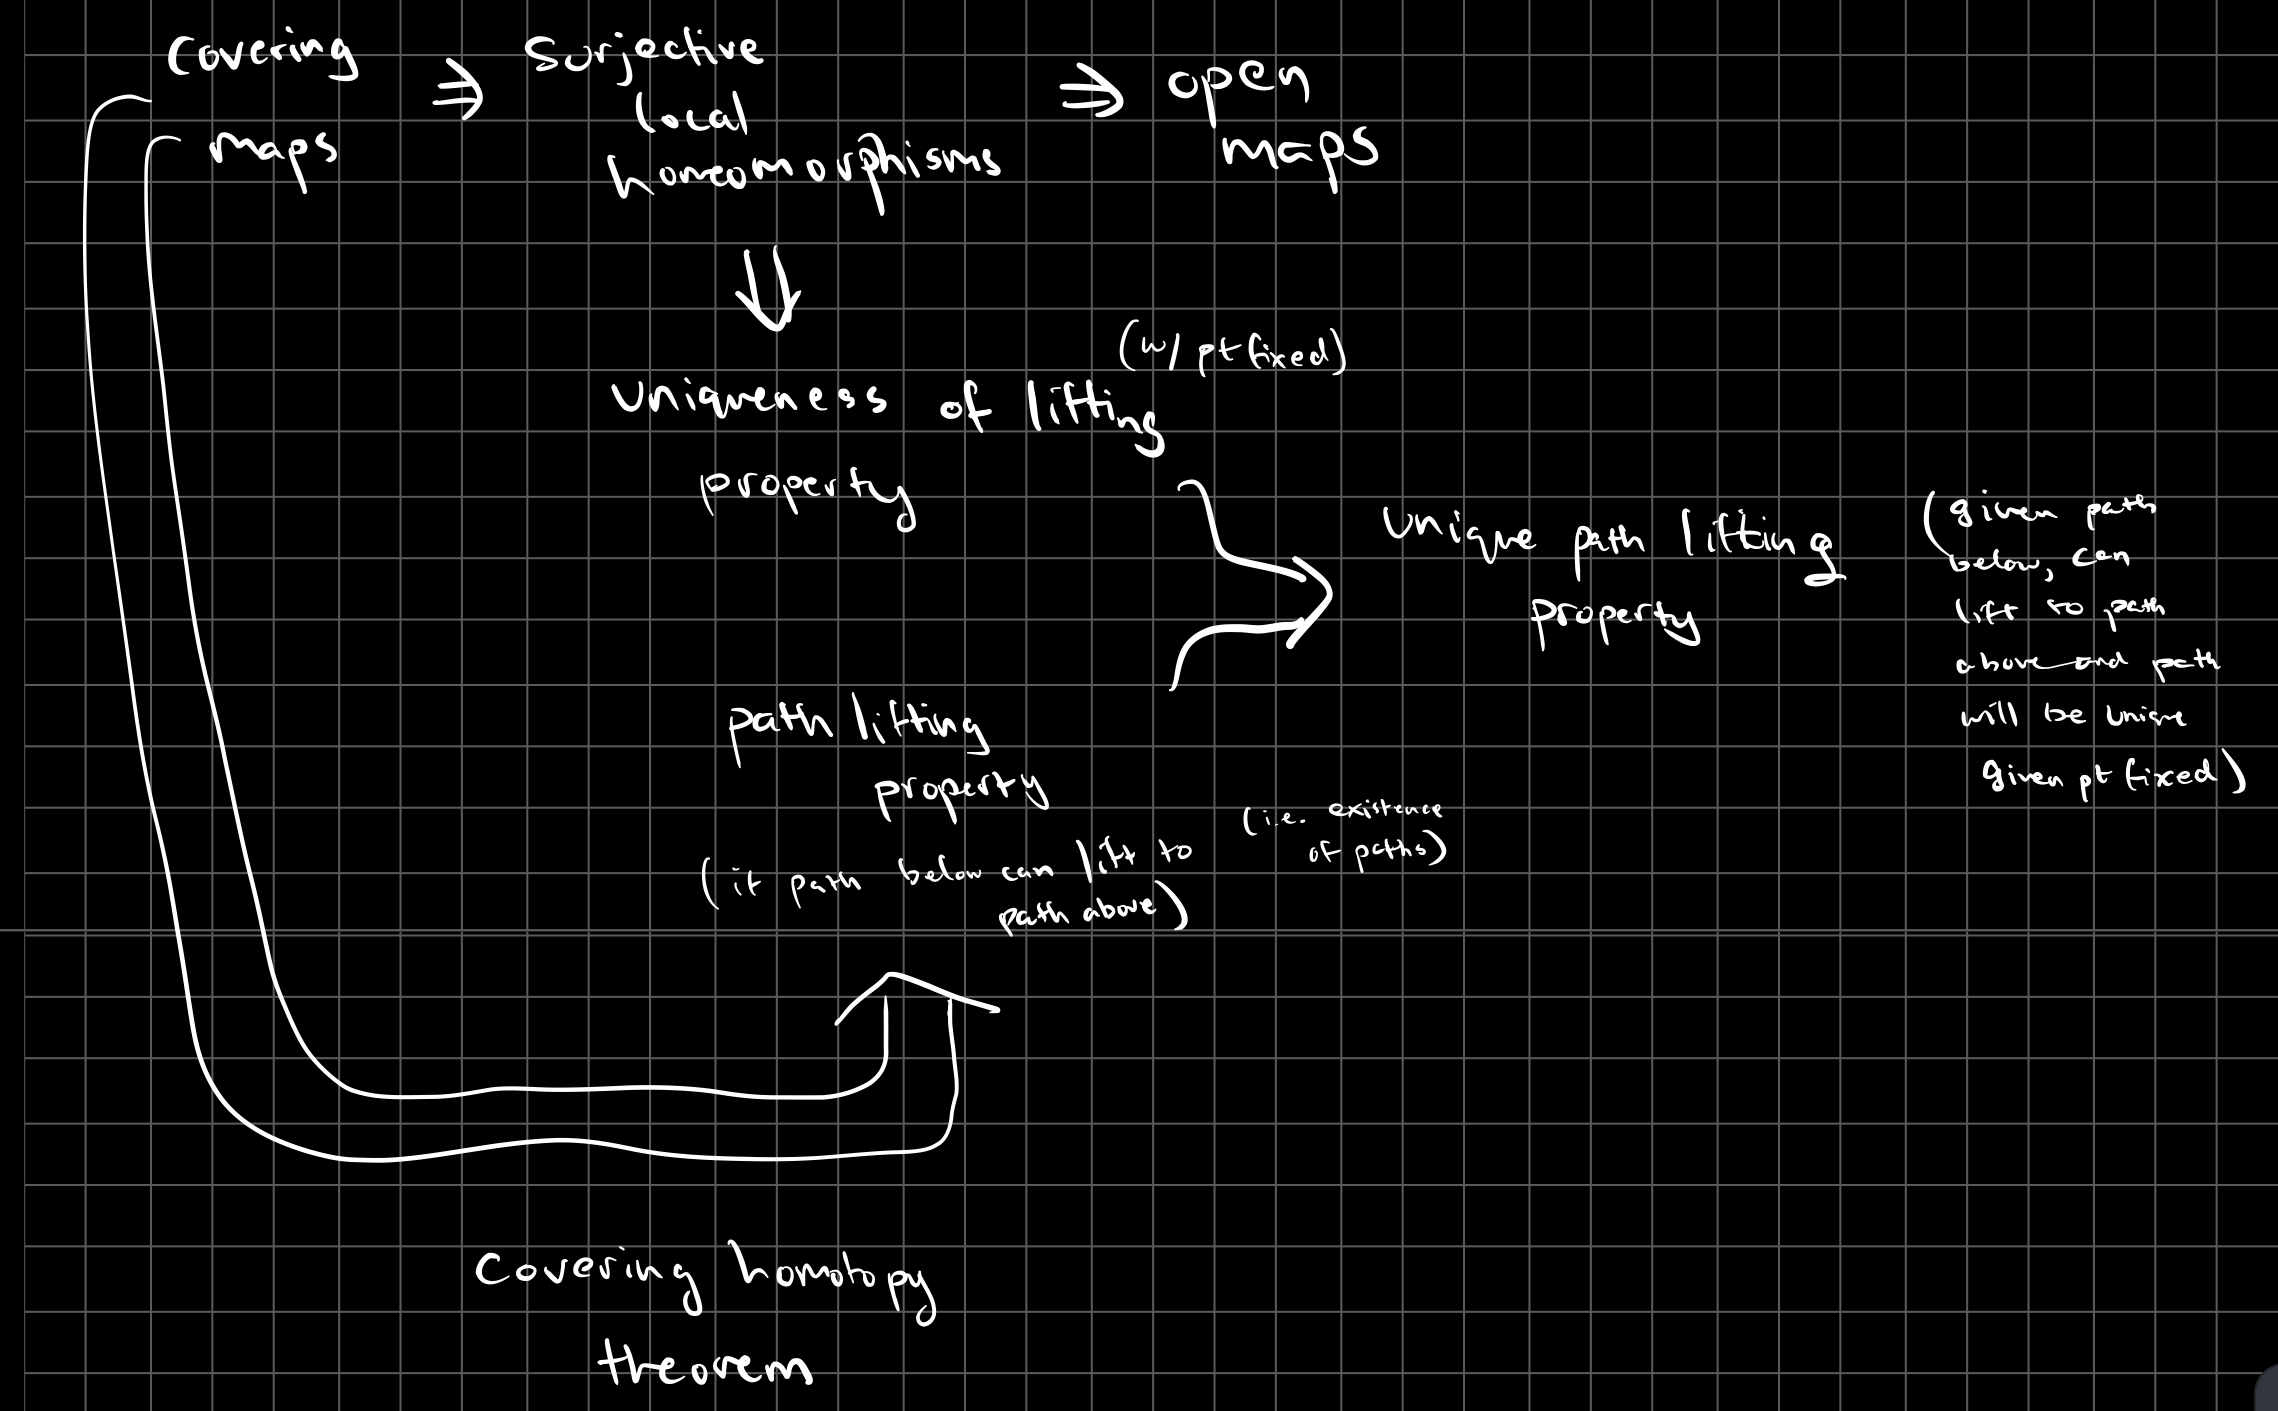 Covering
maps
⇒
Surjective
local
homeomorphisms
⇒
open
maps
⇓
(w/ pt fixed)
Uniqueness of lifting
property
Unique path lifting
property
(given path
below, can
lift to path
above and path
will be unique
given pt fixed)
path lifting
property
(i.e. existence
of paths)
(if path below can lift to
path above)
Covering homotopy
theorem